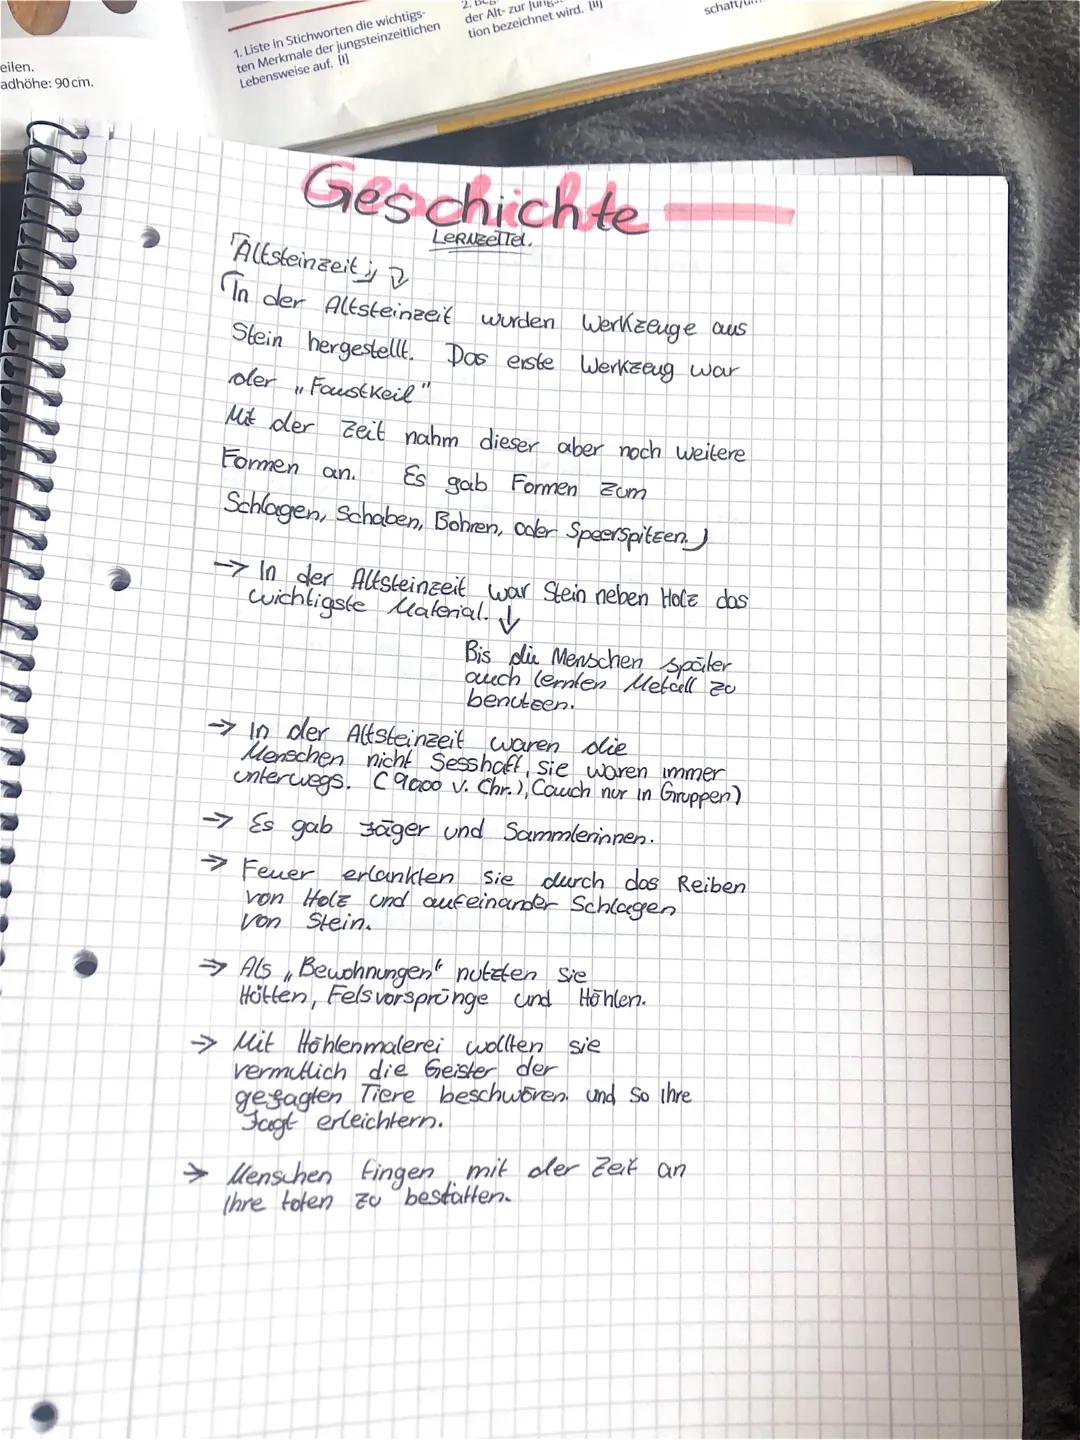 eilen.
adhöhe: 90 cm.
1. Liste in Stichworten die wichtigs-
ten Merkmale der jungsteinzeitlichen
Lebensweise auf. [I]
2.
der Alt- zur
tion bezeichnet wird. [II]
schaft/
Geschichte
Lernzettel.
Altsteinzeit;
In der Altsteinzeit wurden Werkzeuge aus
Stein hergestellt. Das erste Werkzeug war
der „Faustkeil"
Mit der Zeit nahm dieser aber noch weitere
Formen an. Es gab Formen zum
Schlagen, Schaben, Bohren, oder Speerspitzen.)
→ In der Altsteinzeit war Stein neben Holz das
wichtigste Material. ↓
Bis die Menschen später
auch lernten Metall zu
benutzen.
→ In der Altsteinzeit waren die
Menschen nicht Sesshaft, sie waren immer
unterwegs. (9000 v. Chr.), (auch nur in Gruppen)
→ Es gab Jäger und Sammlerinnen.
→ Feuer erlankten sie durch das Reiben
von Holz und aufeinander Schlagen
von Stein.
→ Als „Bewohnungen" nutzten sie
Hütten, Felsvorsprünge und Höhlen.
→ Mit Höhlenmalerei wollten sie
vermutlich die Geister der
gejagten Tiere beschwören und so ihre
Jagt erleichtern.
→ Menschen fingen mit der Zeit an
Ihre toten zu bestatten.